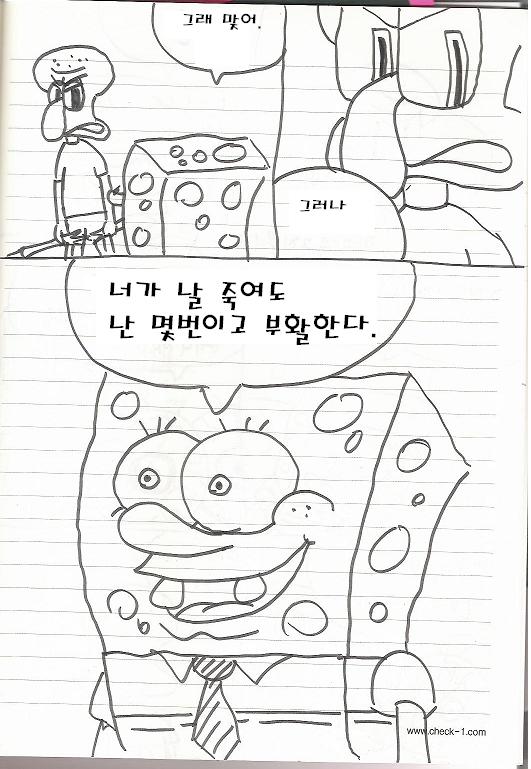 그래 맞어.
그러나
너가 날 죽여도
난 몇번이고 부활한다.
www.check-1.com